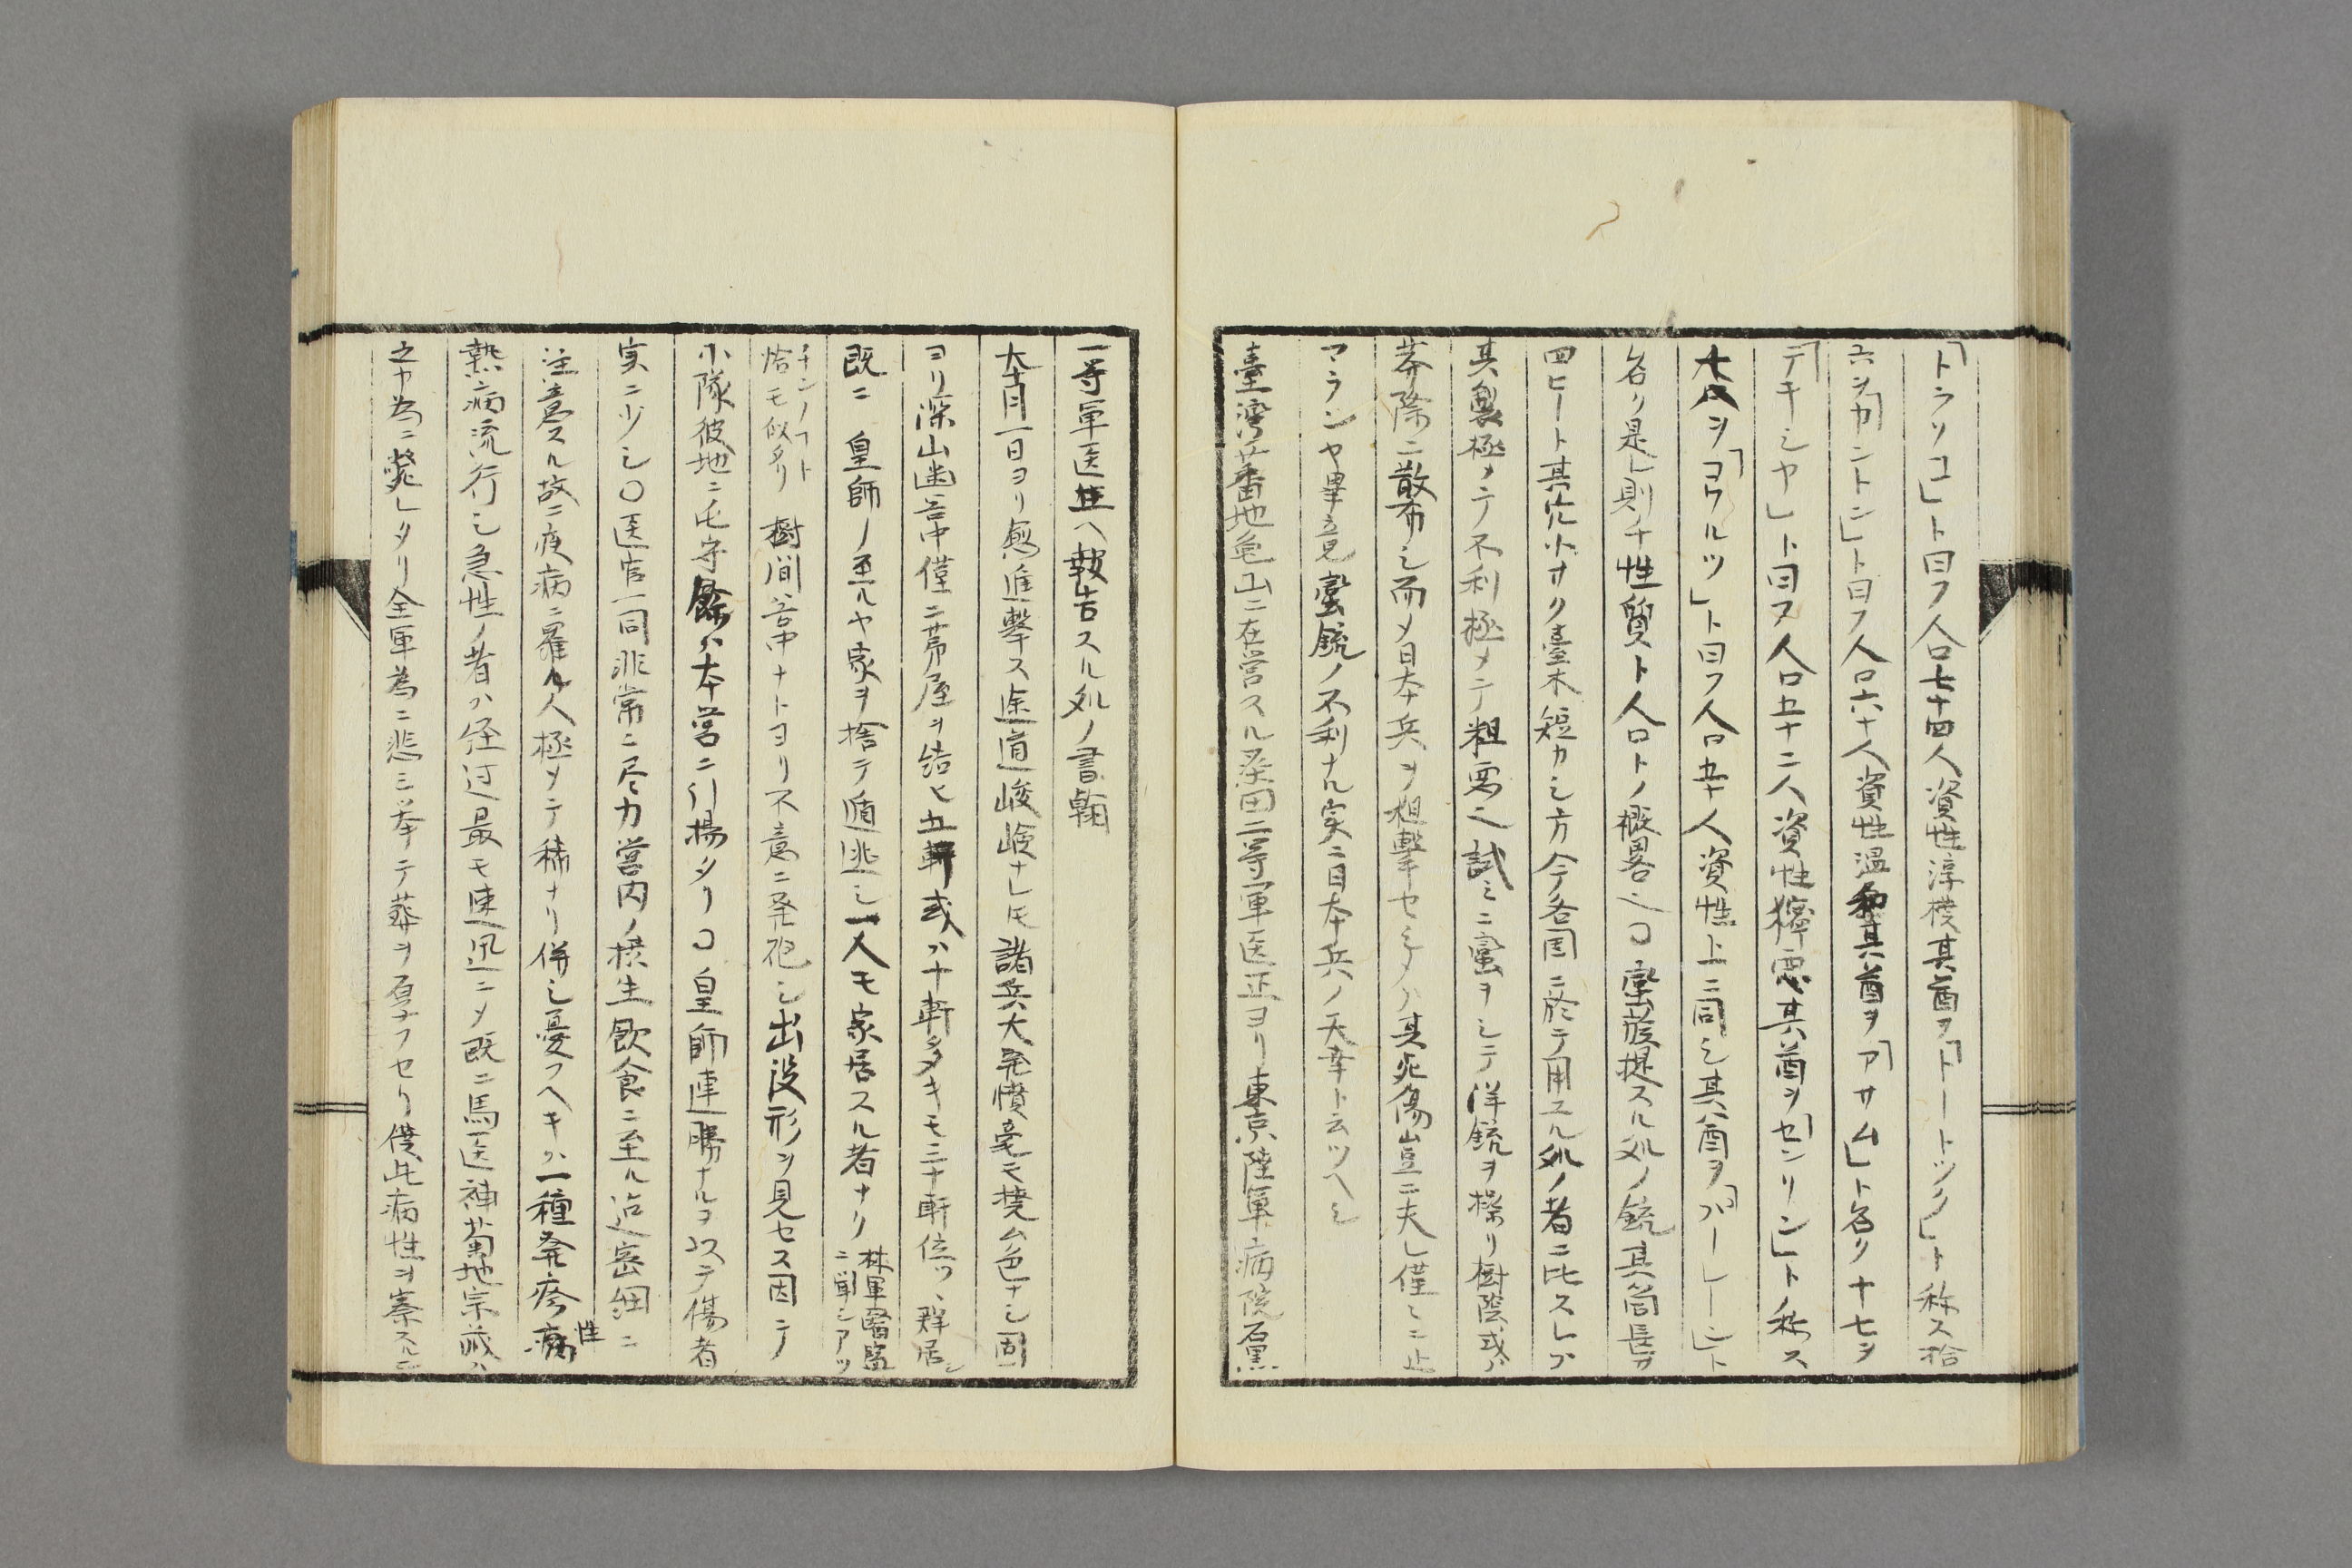 「トラソコ」ト曰フ人口七十四人資性淳樸其酋ヲ「トートツク」ト称ス拾
六ヲ「カントン」ト曰フ人口六十人資性温和其酋ヲ「アサム」ト名リ十七ヲ
「テキシヤ」ト曰フ人口五十二人資性獰悪其酋ヲ「センリン」ト称ス
大尺ヲ「ヨウルツ」ト曰フ人口五十人資性上ニ同シ其酋ヲ「バーレーシ」ト
名リ是レ則チ性質ト人口トノ概畧之〇蛮族提スル処ノ銃其筒長ガ
四ヒート其穴小サク臺木短カシ方今各国ニ於テ用ユル処ノ者ニ比スレハ
其製極メテ不利極メテ粗悪之試ミニ蛮ヲシテ洋銃ヲ操リ樹陰或ハ
莽際ニ散布シ而メ日本兵ヲ狙撃セシメハ其死傷豈ニ夫レ僅々ニ止
マランヤ畢竟蛮銃ノ不利ナル実ニ日本兵ノ天幸ト云ツヘシ
臺湾蕃地亀山ニ在営スル桑田二等軍医正ヨリ東京陸軍病院石黒
一等軍医正ヘ報告スル処ノ書翰
六月一日ヨリ愈進撃ス途道峻嶮ナレ𪜈諸兵大発憤毫モ撓ム色ナシ固
ヨリ深山幽谷中僅ニ茅屋ヲ結ヒ五軒或ハ十軒多キモ三十軒位ツヽ群居シ
既ニ 皇師ノ至ルヤ家ヲ捨テ遁逃シ一人モ家居スル者ナリ
林軍醫監
ニ聞シアツ
チンノフト
恰モ似タリ
樹間谷中ナトヨリ不意ニ発砲シ出没形ヲ見セス因テ
小隊彼地ニ屯守餘ハ本営ニ引揚タリ〇皇師連勝ナルヲ以テ傷者
実ニ少シ〇医官一同非常ニ尽力営内ノ摂生飲食ニ至ル迄密細ニ
注意スル故ニ疫病ニ罹ル人極メテ稀ナリ併シ憂フヘキハ一種発疹性病
熱病流行シ急性ノ者ハ経過最モ速迅ニメ既ニ馬医神菊地宗蔵ハ
之カ為ニ斃レタリ全軍為ニ悲ミ挙テ葬ヲ厚フセリ僕此病性ヲ案スルニ